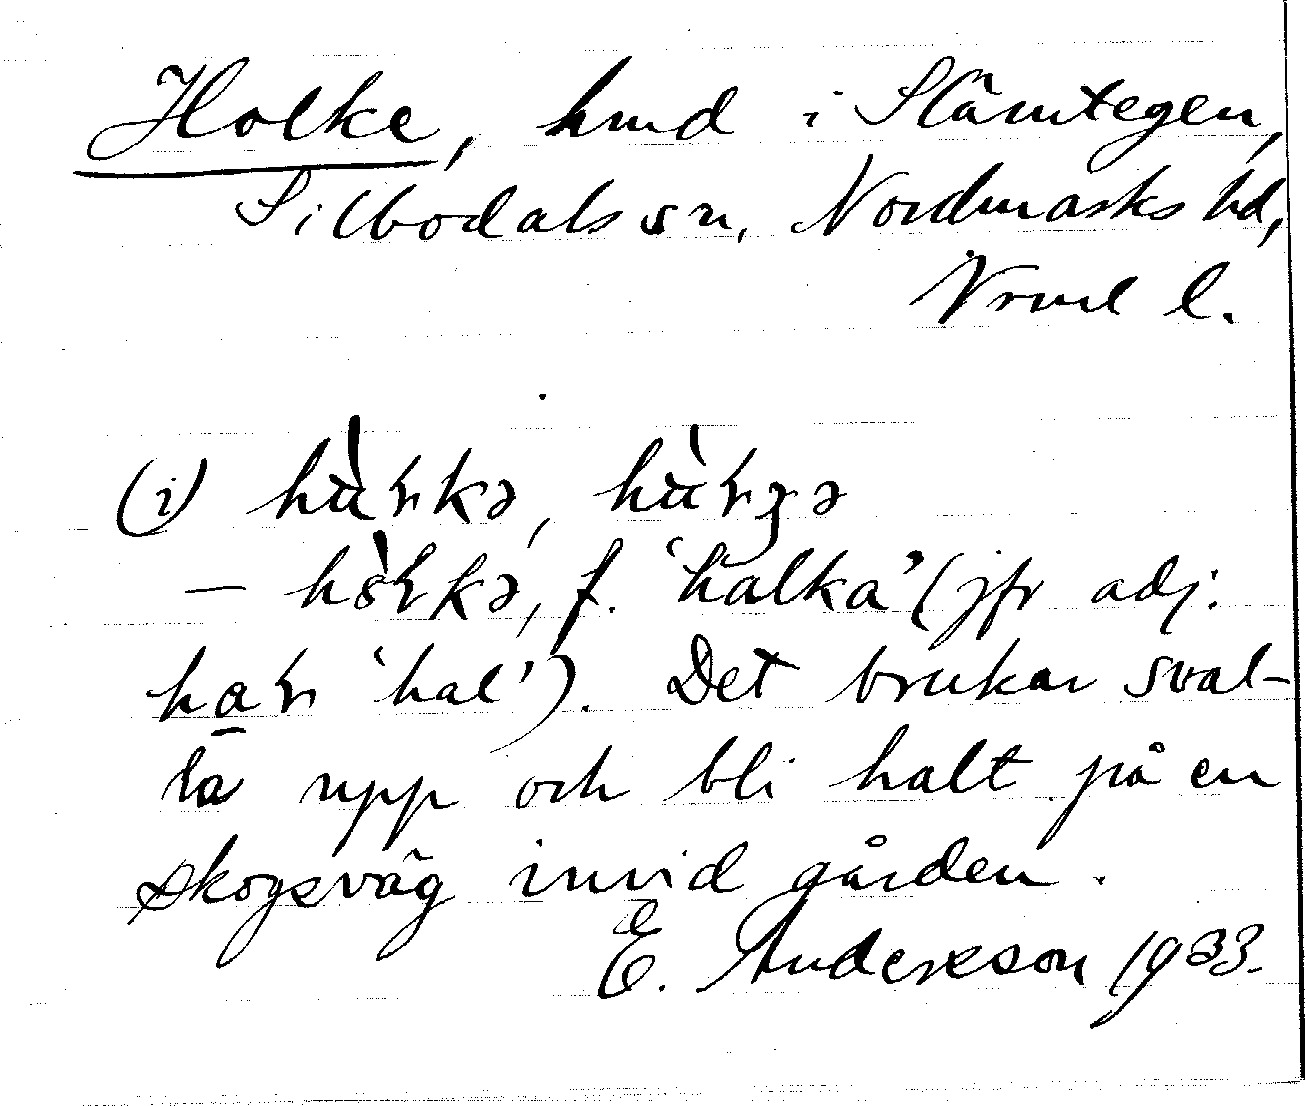 Holke, hmd i Slämtegen,
Silbodals sn, Nordmarks hd,
Vrml l.
(i) hu̇̀ɽkə, hu̇̀ɽʒə
— hȯ̀ɽkə, f. 'halka' (jfr adj.
ha̠ɽ 'hal'). Det brukar sval-
la upp och bli halt på en
skogsväg invid gården.
E. Andersson 1933.